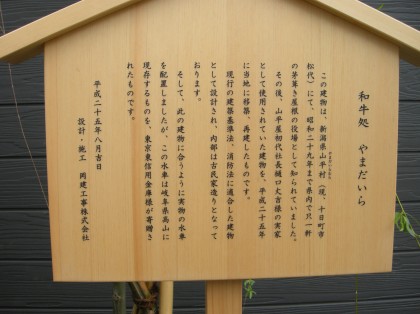 和牛処 やまだいら
この建物は、新潟県山平村(現、十日町市
松代)にて、昭和二十九年まで県内で只一軒
の茅葺き屋根の役場として知られていました。
その後、山平屋初代社長樋口様の実家
として使用されていた建物を、平成二十五年
に当地に移築、再建したもので
現行の建築基準法、消防法に適合した建物
として設計され、内部は古民家造りとなって
おります。
そして、此の建物に合うように実物の水車
を配置しましたが、この水車は岐阜県高山に
現存するものを、東京東信用金庫様が寄贈さ
れたものです。
平成二十五年八月吉日
設計・施工 岡建工事株式会社